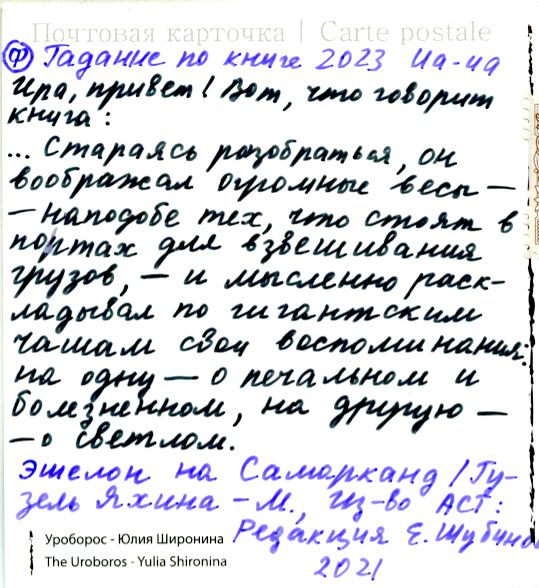 Почтовая карточка | Carte postale
Ф Гадание по книге 2023 Иа-иа
Ира, привет! Вот, что говорит
книга:
... Стараясь разобраться, он
воображал огромные весы —
— наподобе тех, что стоят в
портах для взвешивания
грузов, — и мысленно раск-
ладывал по гигантским
чашам свои воспоминания:
на одну — о печальном и
болезненном, на другую —
— о светлом.
Эшелон на Самарканд / Гу-
зель Яхина - М., Из-во АСТ:
Редакция Е. Шубиной
2021
Уроборос - Юлия Широнина
The Uroboros - Yulia Shironina